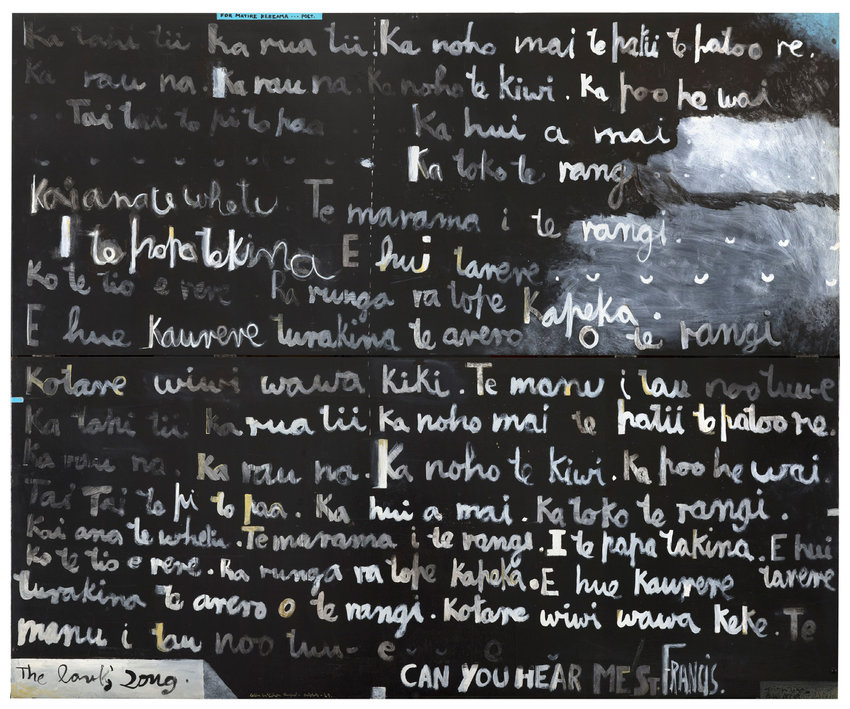 FOR MATIRE KEREAMA ... POET.
Ka tahi tii Ka rua tii Ka noho mai te patii te patoo re.
Ka rau na. Ka rau na. Ka noho te kiwi. Ka poo he wai
Tai tai to pi to paa Ka hui a mai
Ka toko te rangi
Kai ana te whetu. Te marama i te rangi.
I te papa tekina E hui tarere.
Ko te tio e rere Ra runga ra tope Kapeka.
E hue Kaurere turakina te arero O te rangi
Kotare wiwi wawa kiki. Te manu i tau noo tuu-e
Ka tahi tii Ka rua tii Ka noho mai te patii te patoo re.
Ka rau na. Ka rau na. Ka noho te kiwi. Ka poo he wai.
Tai Tai to pi to paa. Ka hui a mai. Ka toko te rangi.
Kai ana te whetu. Te marama i te rangi. I te papa takina. E hui
Ko te tio e rere. Ra runga ra tope Kapeka. E hue Kaurere tarere
turakina te arero o te rangi. Kotare wiwi wawa keke. Te
manu i tau noo tuu- e
The lark's song. CAN YOU HEAR ME St. FRANCIS.